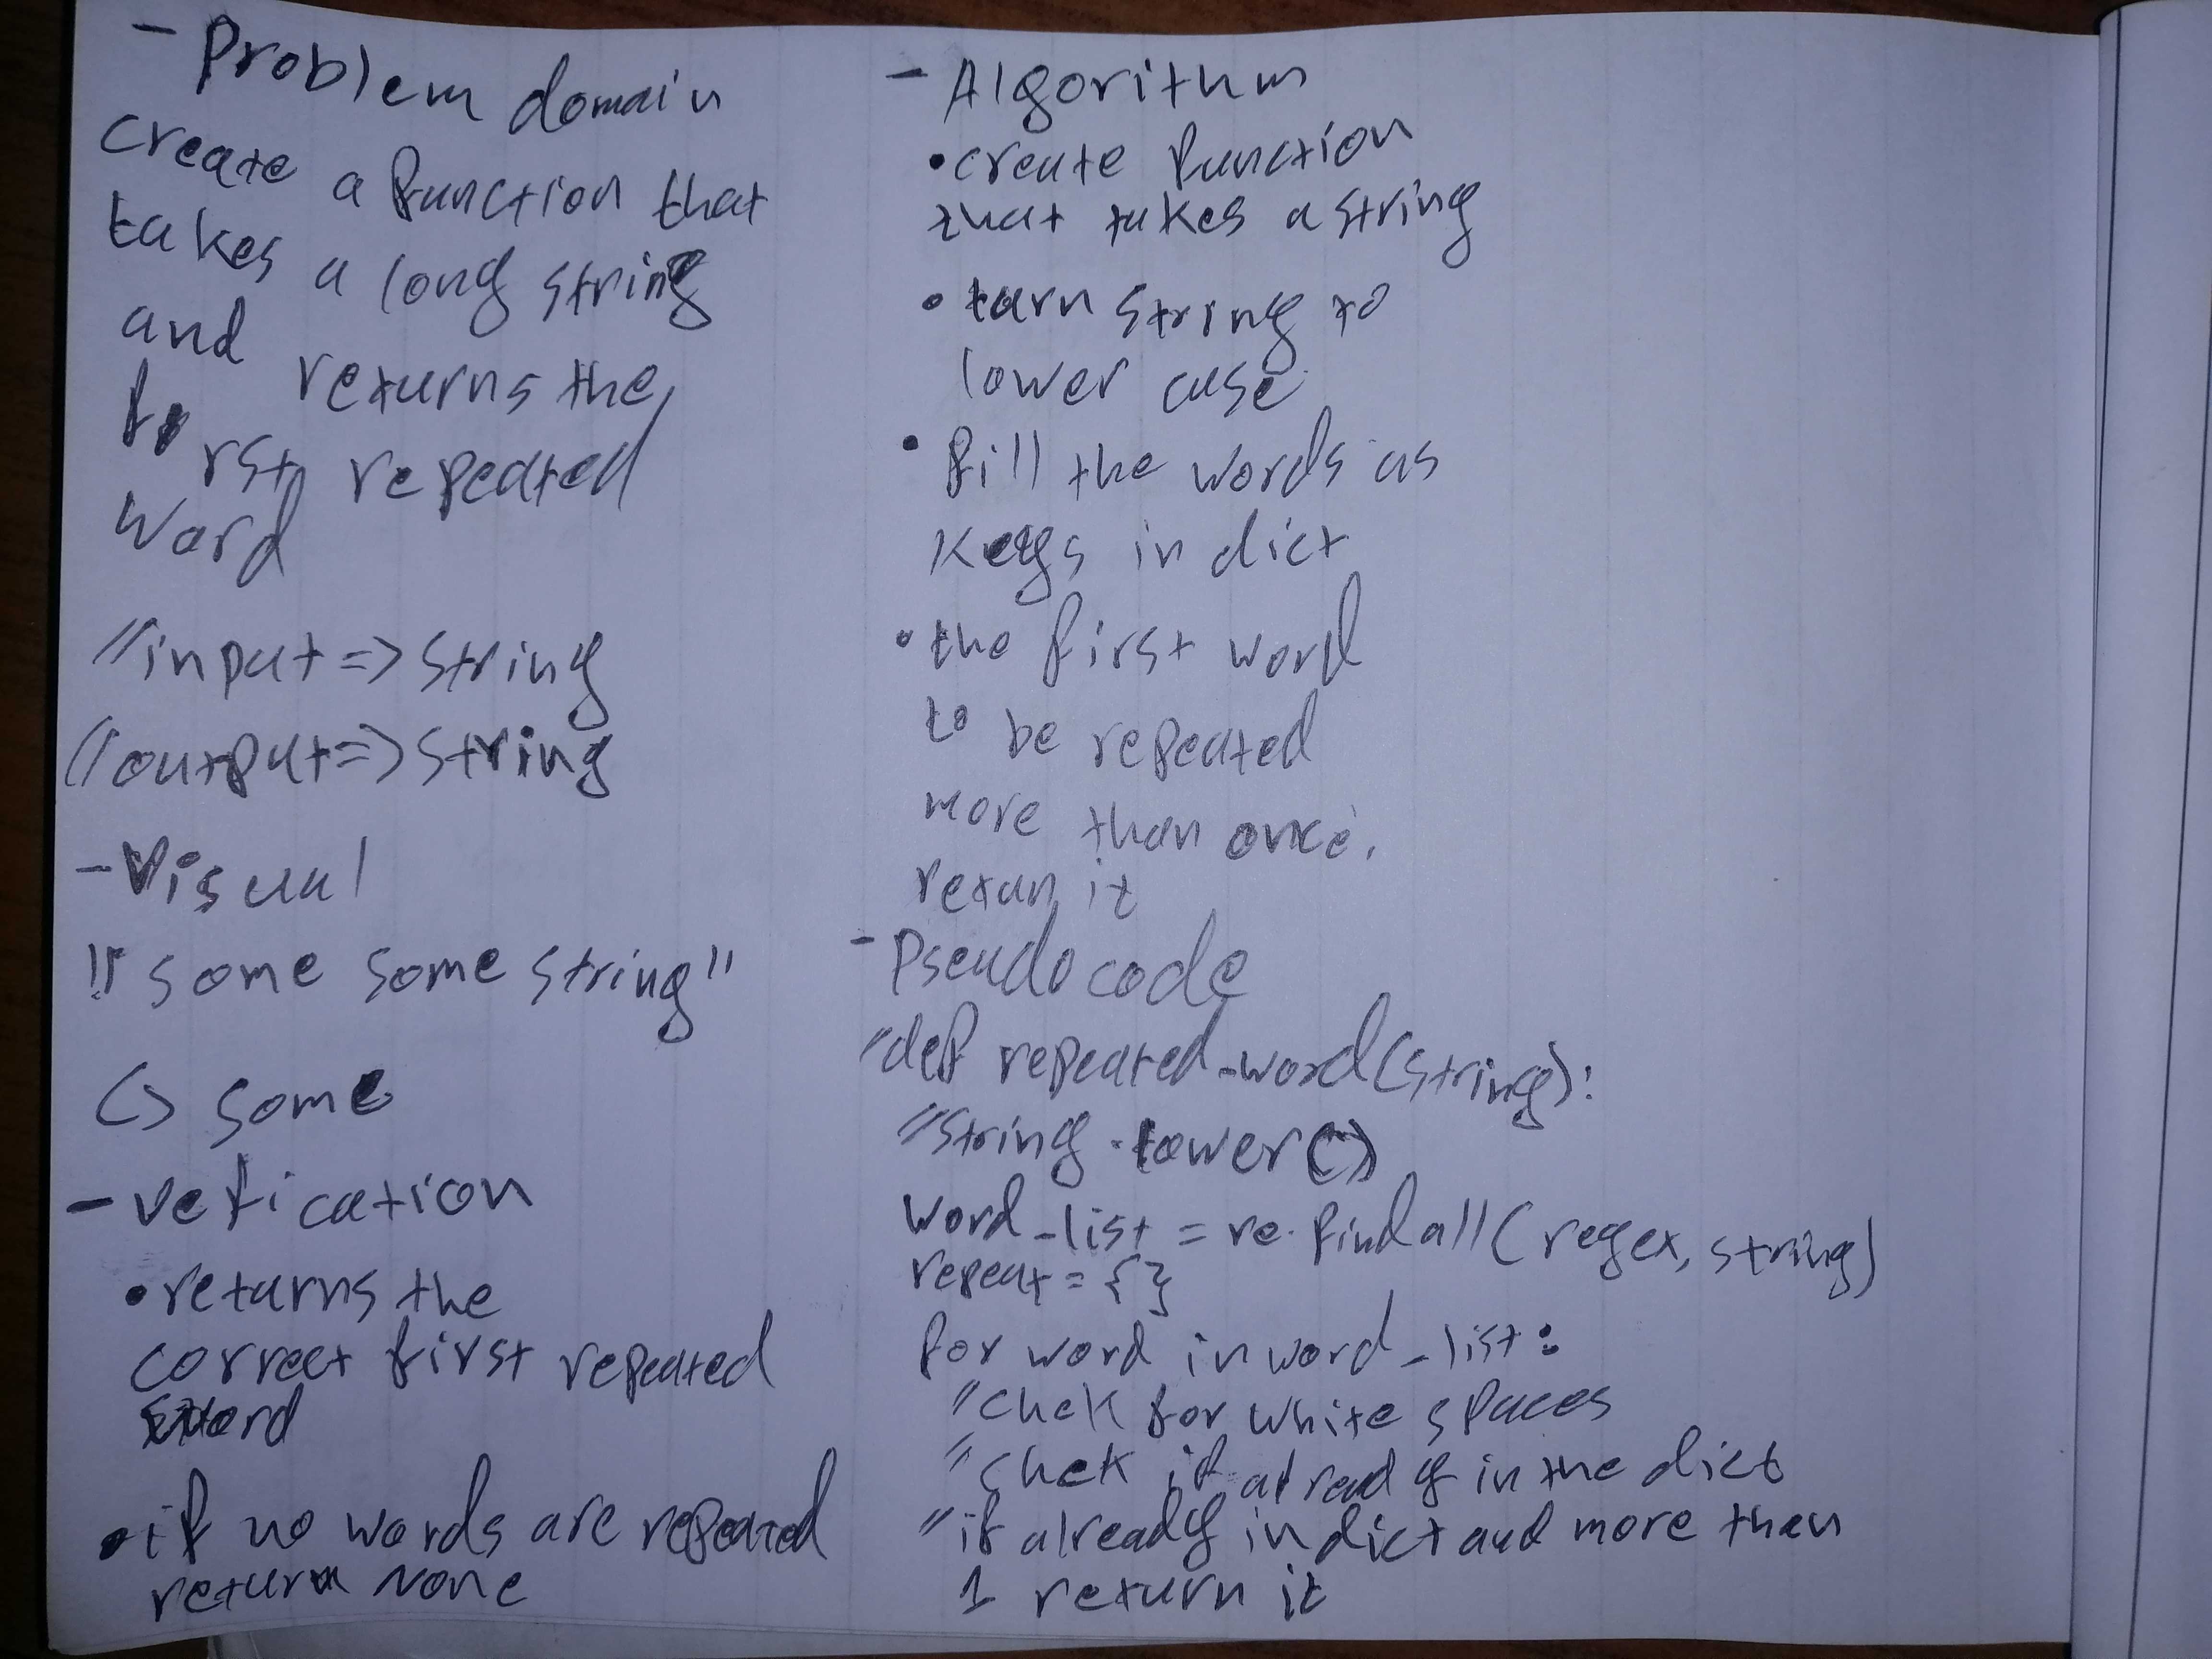 - Problem domain
create a function that
takes a long string
and returns the
first repeated
word
"input => string
"output => string
- Visual
"some some string"
↳ some
- vefication
• returns the
correct first repeated
word
• if no words are repeated
return None
- Algorithm
• create function
that takes a string
• turn string to
lower case
• fill the words as
keys in dict
• the first word
to be repeated
more than once,
retun it
- Pseudo code
"def repeated_word(string):
"string.lower()
word_list = re.findall(regex, string)
repeat = {}
for word in word_list:
"chek for white spaces
"chek if already in the dict
"if already in dict and more then
1 return it